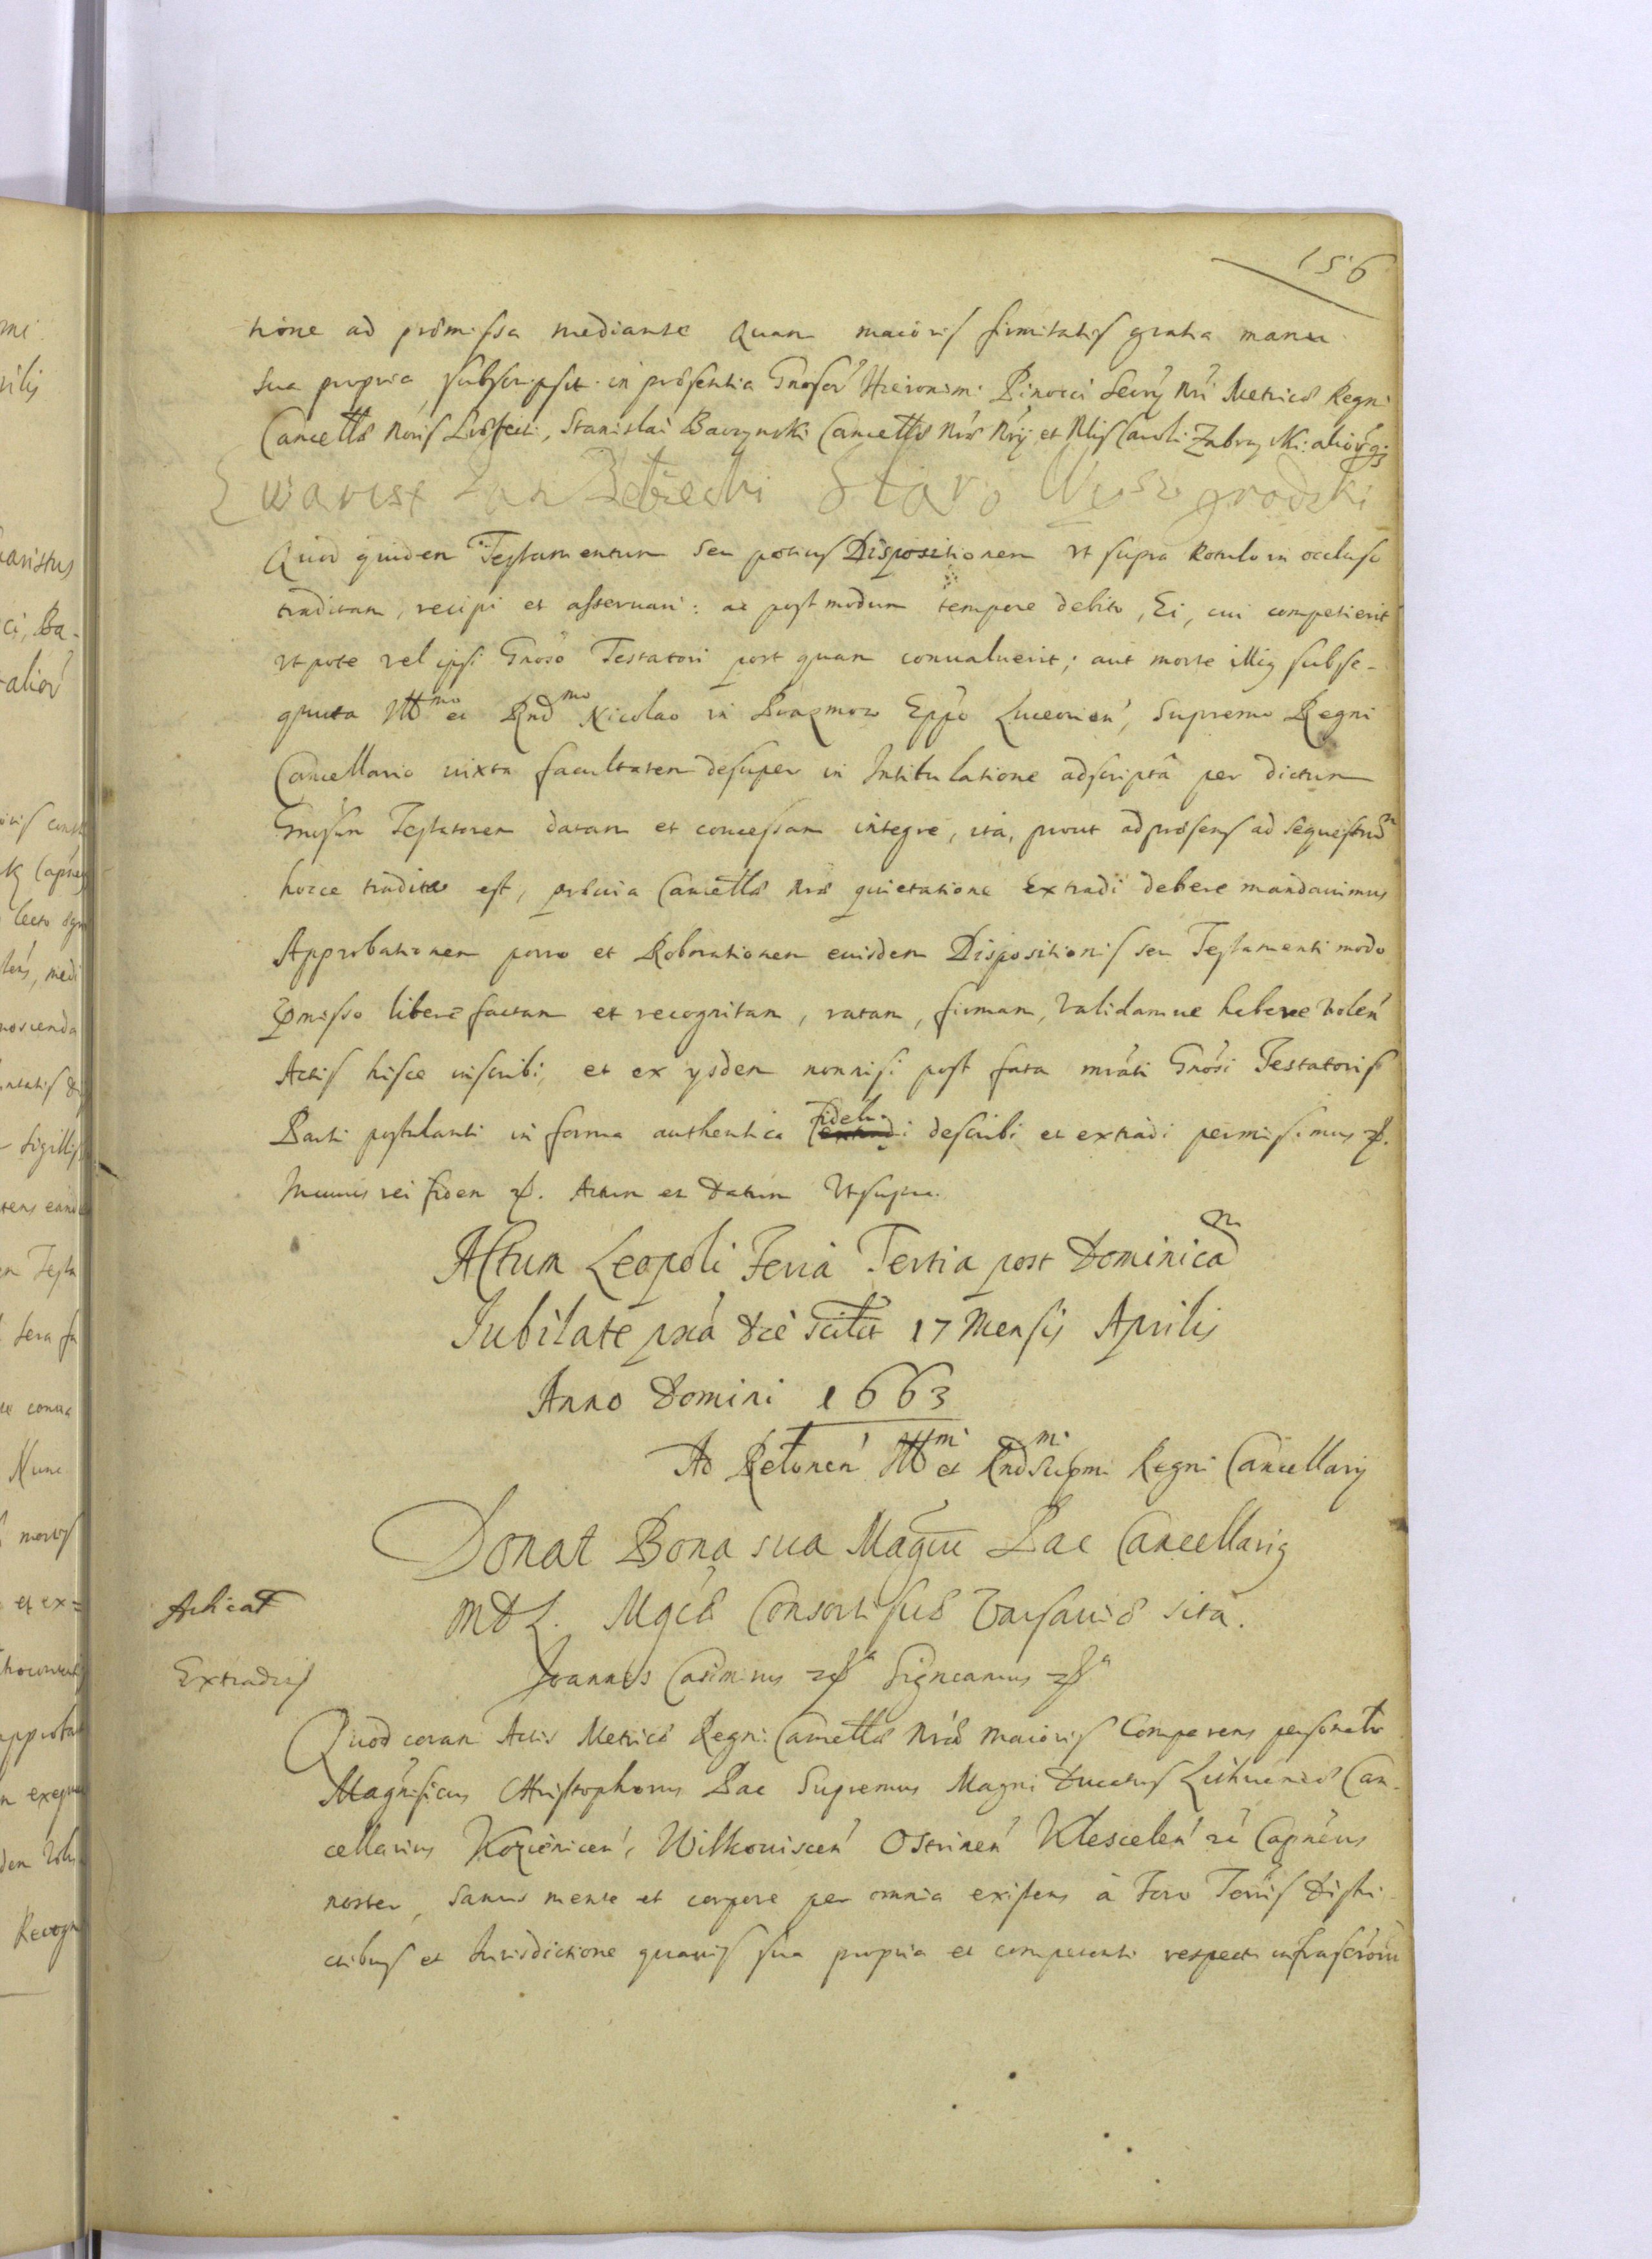 156
tione ad præmissa mediante Quam maioris firmitatis gratia manu
sua propria subscripsit in præsentia Gnosor Hieronimi Pinocci Secry Nri Metricæ Regni
Cancellæ Noris Præfecti, Stanislai Baczynski Cancellæ Nræ Nrij et Nlis Caroli aliorqz
Ewarist Jan Bełzecki Staro Wyszogrodzki
Quod quidem Testamentum seu potius Dispositionem ut supra Rotulo in occluso
traditam, recipi et asservari: ac postmodum tempore debito, Ei, cui competierit
utpote vel ipsi Gnoso Testatori postquam conualuerit; aut morte illius subse-
quuta Illmo et Rndmo Nicolao in Prazmow Eppo Luceorien, Supremo Regni
Cancellario iuxta facultatem desuper in Intitulatione adscriptâ per dictum
Gnosum Testatorem datam et concessam integre, ita, prout ad præsens ad sequestrum
hocce tradita est, prævia Cancellæ Næ quietatione Extradi debere mandauimus
Approbationem porro et Roborationem euisdem Dispositionis seu Testamenti modo
præmisso liberè factam et recognitam, ratam, firmam, validamue habere volen
Actis hisce inscribi, et ex ysdem nonnisi post fata mrâti Gnosi Testatoris
Parti postulanti in forma authentica fidelr describi et extradi permisimus
In cuius rei fidem Actum et Datum Ut supra.
Actum Leopoli Feria Tertia post Dominicam
Iubilate pxa die scilet 17 Mensis Aprilis
Anno Domini 1663
Ad Relonen Illmi et Rndmi Supmi Regni Cancellarij
Donat Bona sua Magcus Pac Cancellarius
MDL. Mgcæ Consorti suæ Varsauiæ sita.
Arhicat
Extradis
Joannes Casimirus Significamus
Quod coram Actis Metricæ Regni Cancellæ Nræ Maioris Comparens personalr
Magnificus Christophorus Pac Supremus Magni Ducatus Lithuaniæ Can-
cellarius Kozienicen, Wilkouiscen Ostrinen Klescelen Capneus
noster, sanus mente et corpore per omnia existens à Foro Terris Distri-
ctibus et Iurisdictione quauis sua propria et competenti respectu infrascrorum